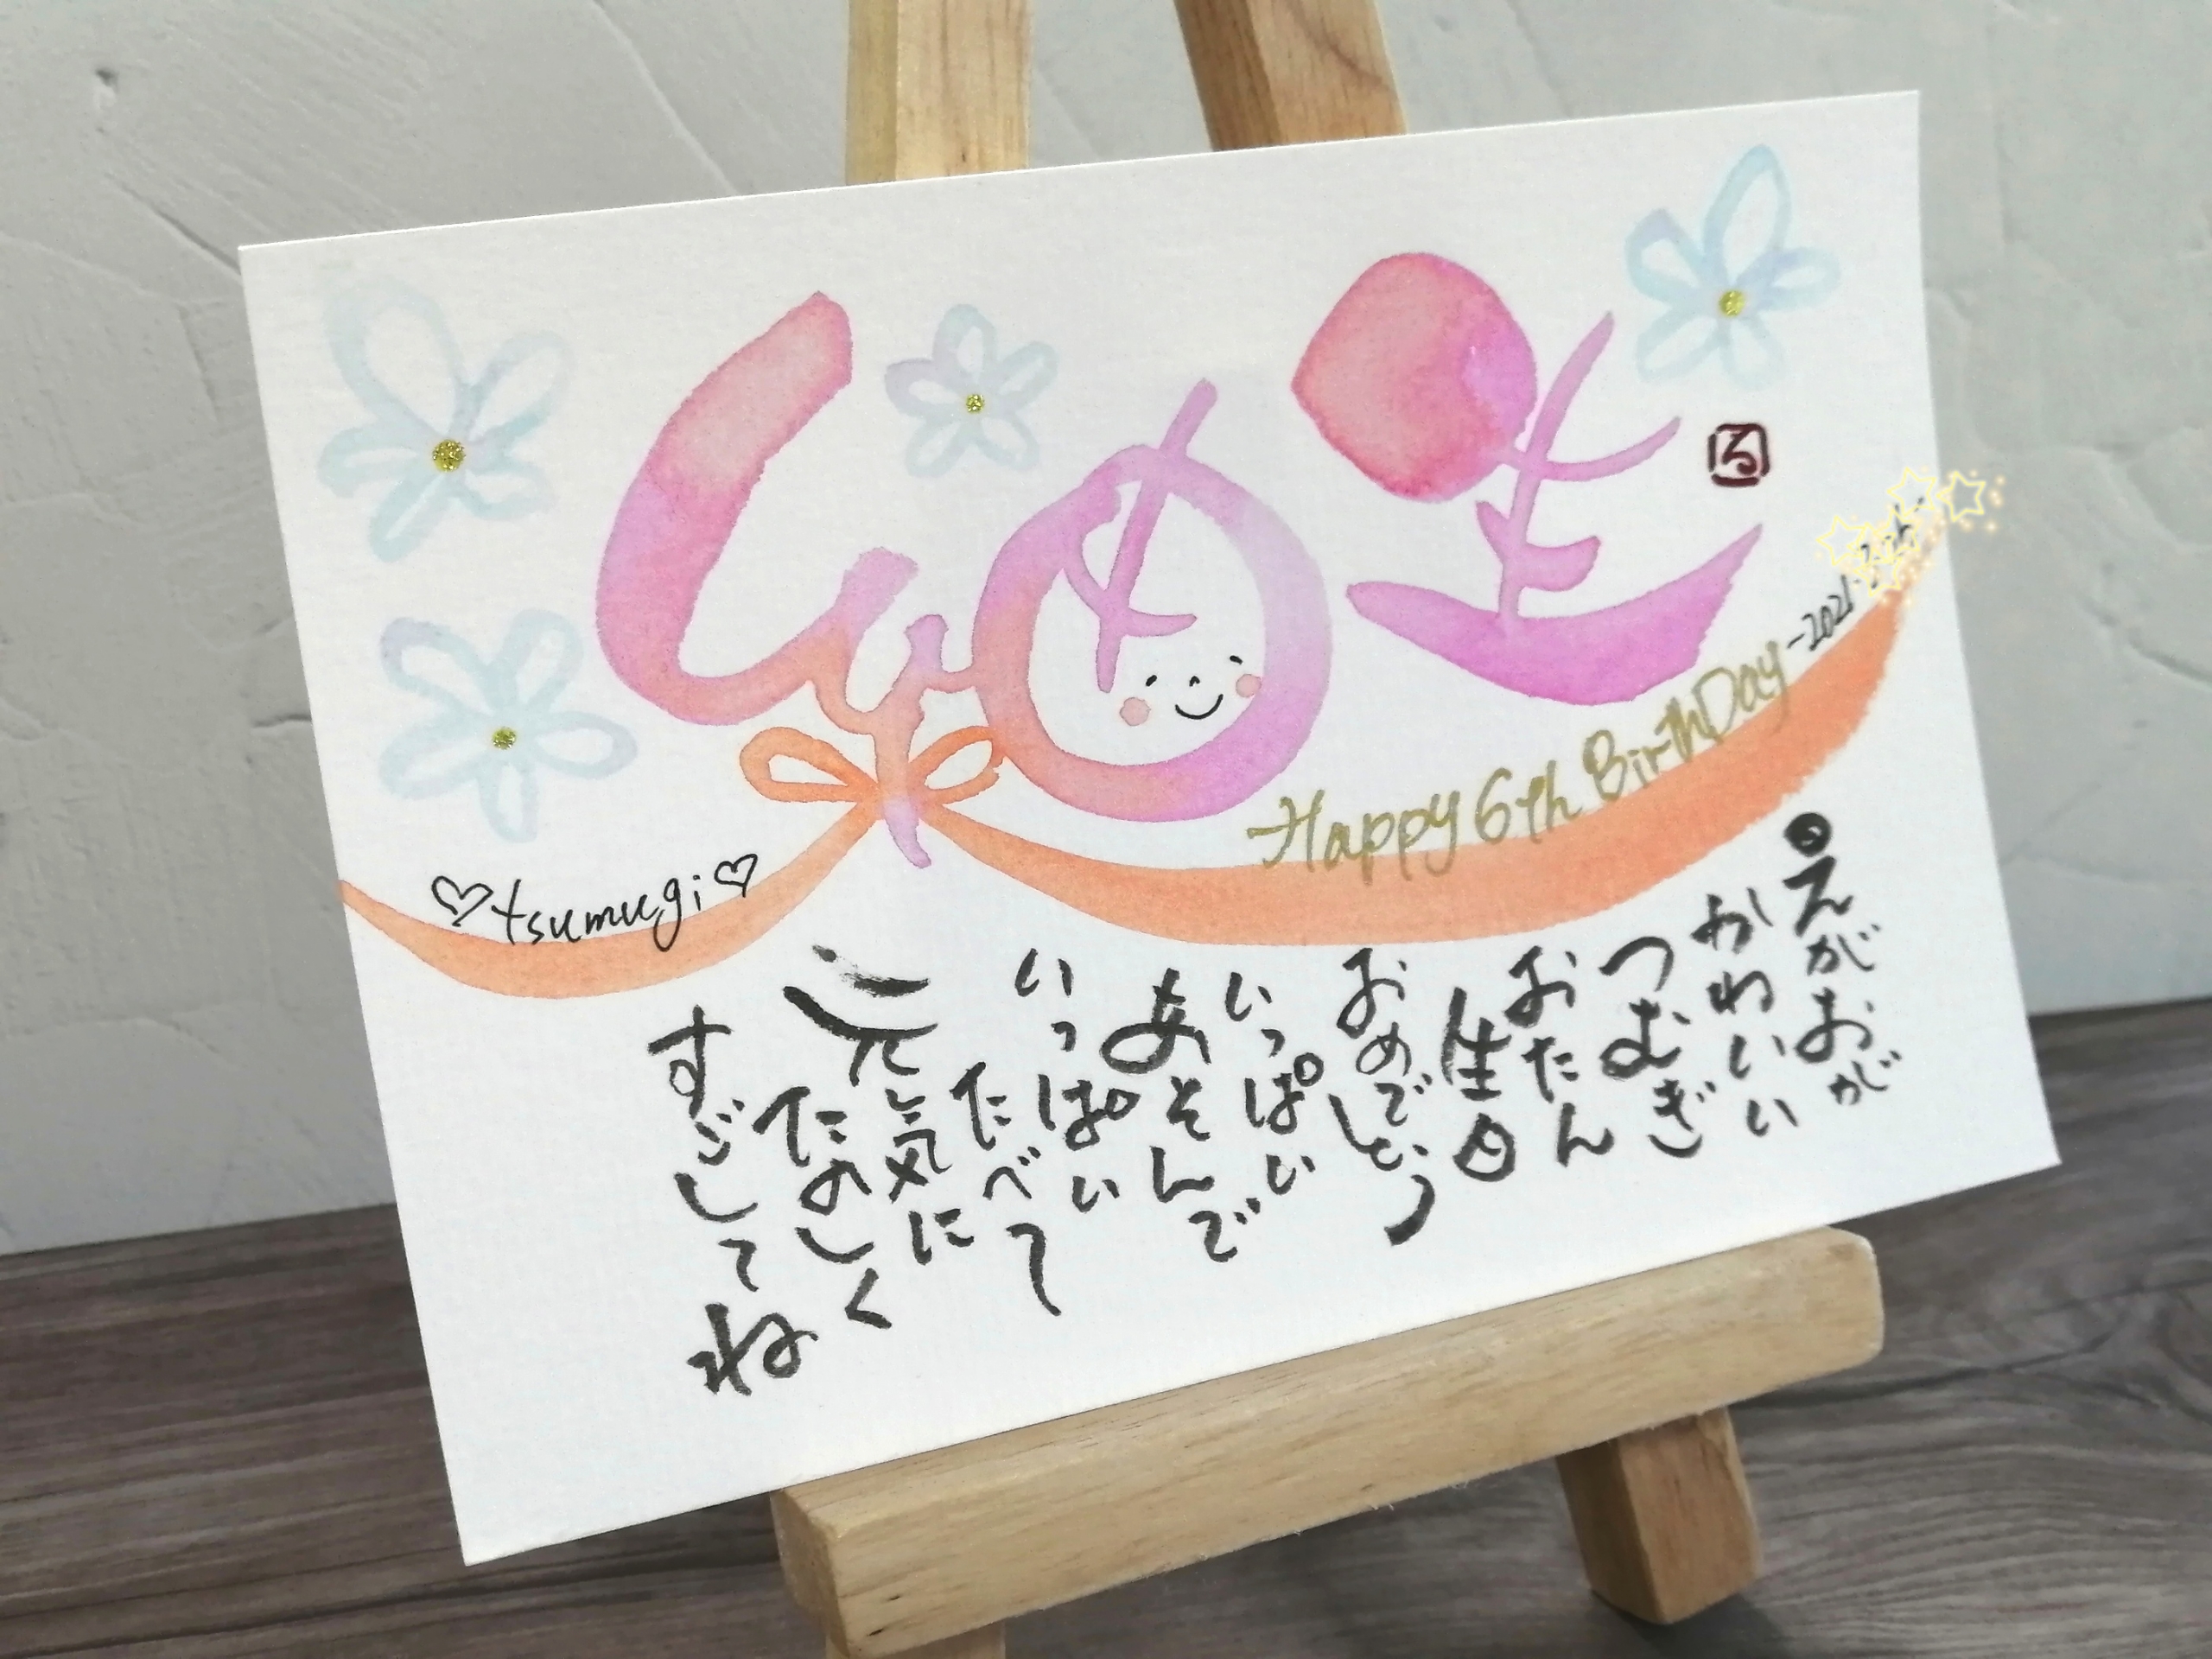 る
Happy 6th BirthDay -2021
tsumugi
えがおが
かわいい
つむぎ
おたん
生日
おめでとう
いっぱい
あそんで
いっぱい
たべて
元気に
たのしく
すごしてね